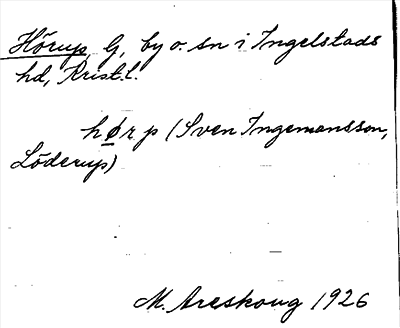 Hörup, G, by o. sn i Ingelstads
hd, Krist.l.
hø̠r p (Sven Ingemansson,
Löderup)
M. Areskoug 1926